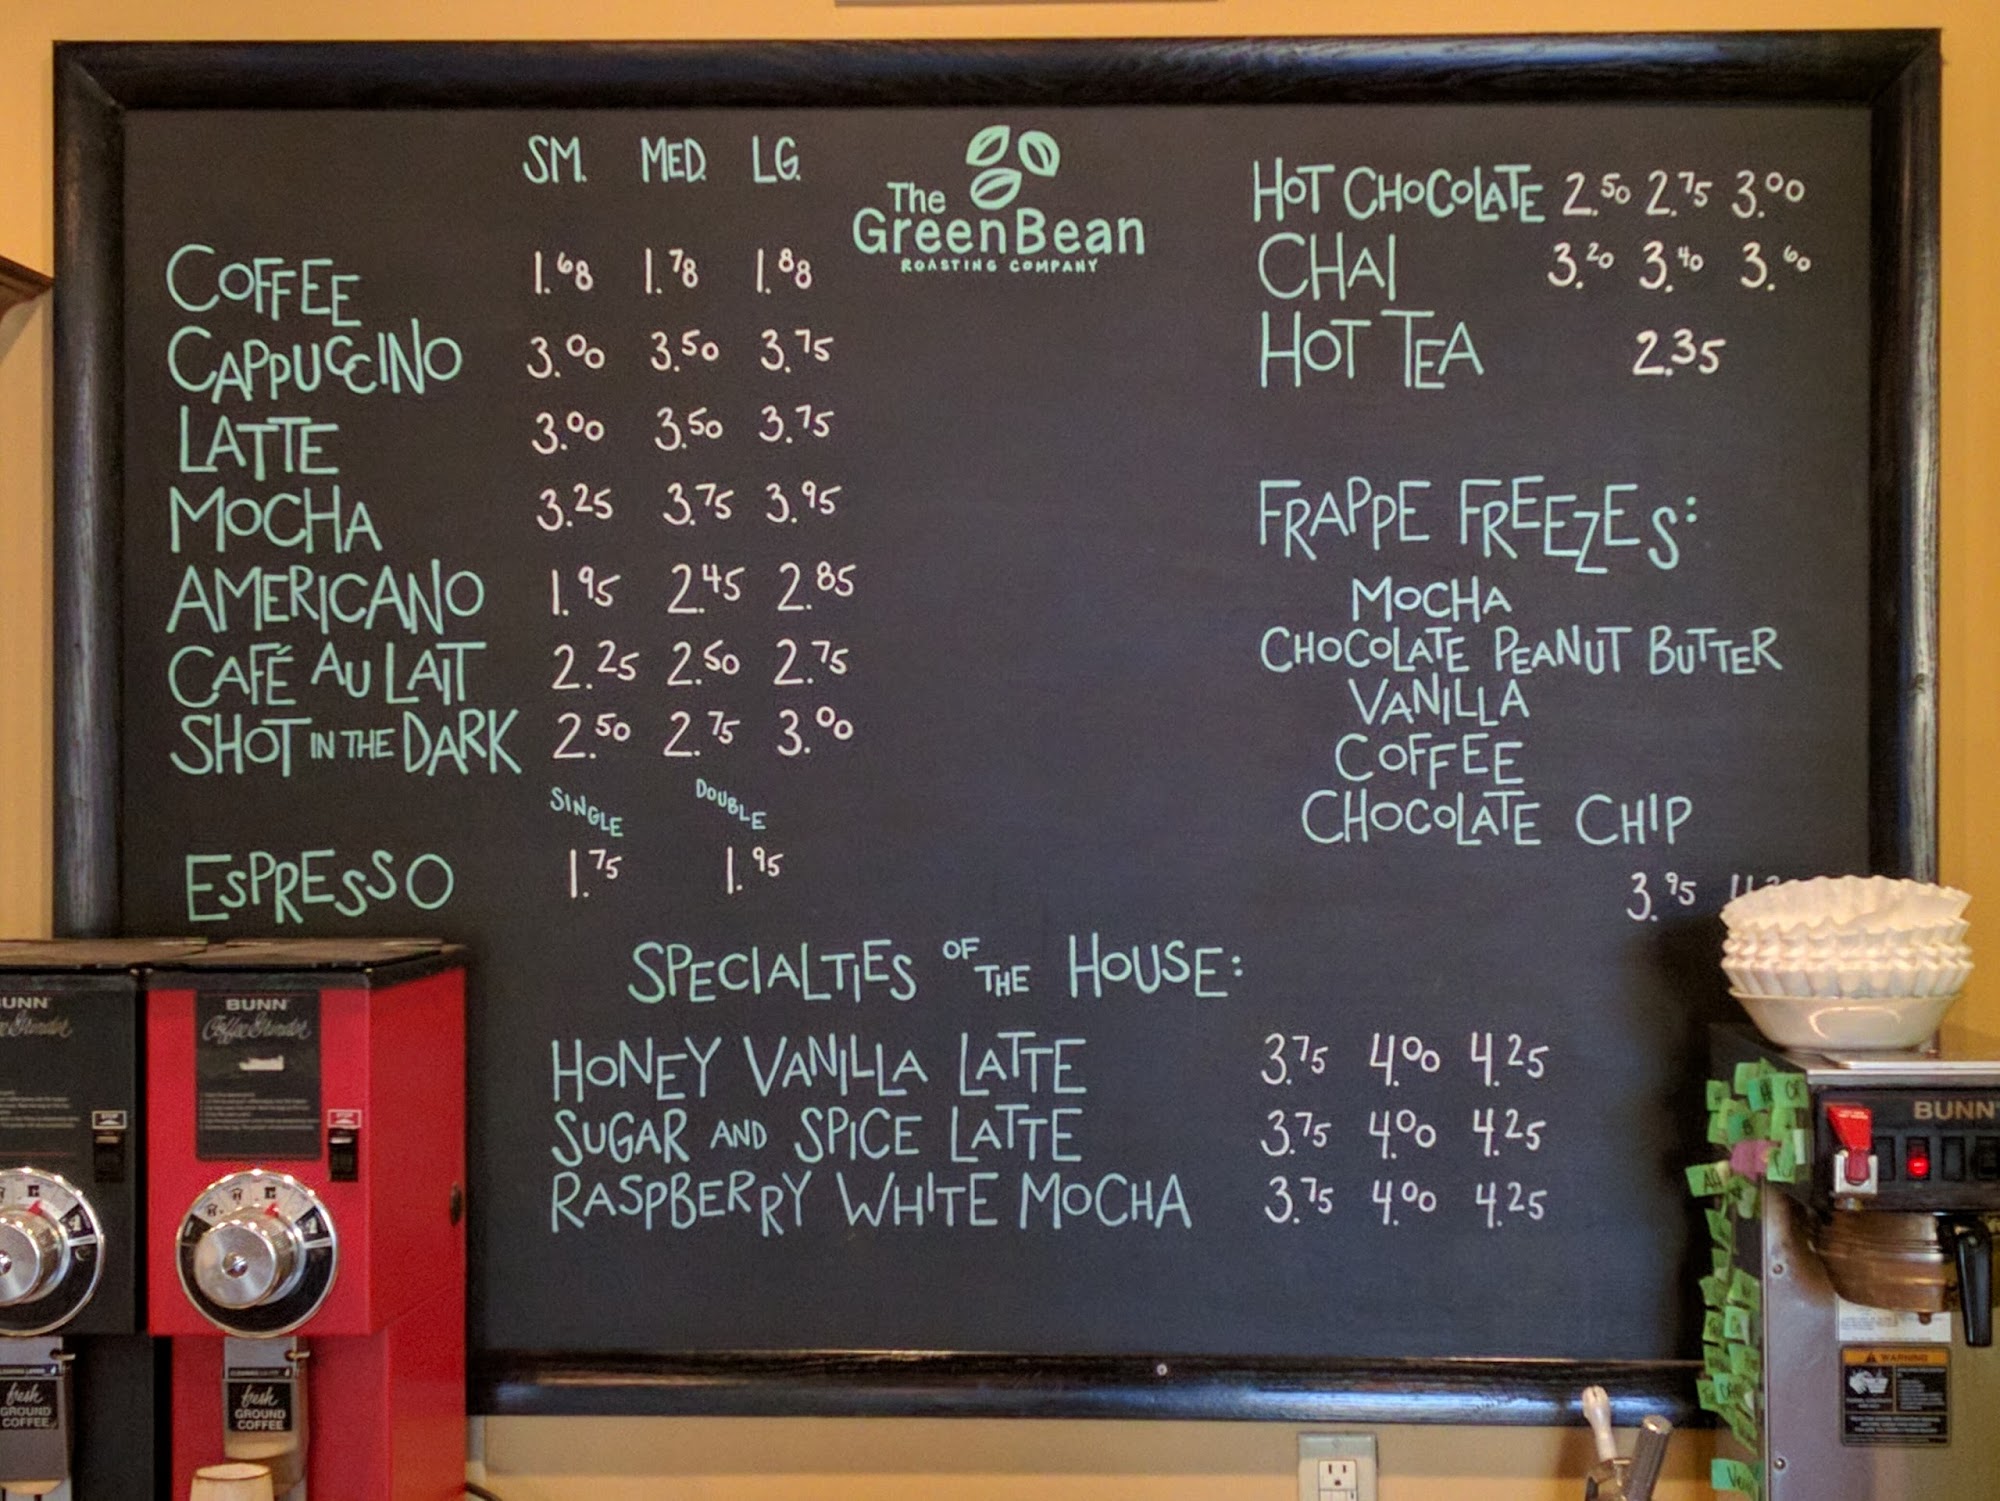 SM. MED. LG.
The
GreenBean
ROASTING COMPANY
COFFEE 1.68 1.78 1.88
CAPPUCCINO 3.00 3.50 3.75
LATTE 3.00 3.50 3.75
MOCHA 3.25 3.75 3.95
AMERICANO 1.95 2.45 2.85
CAFÉ AU LAIT 2.25 2.50 2.75
SHOT IN THE DARK 2.50 2.75 3.00
SINGLE DOUBLE
ESPRESSO 1.75 1.95
HOT CHOCOLATE 2.50 2.75 3.00
CHAI 3.20 3.40 3.60
HOT TEA 2.35
FRAPPE FREEZES:
MOCHA
CHOCOLATE PEANUT BUTTER
VANILLA
COFFEE
CHOCOLATE CHIP
3.95
SPECIALTIES OF THE HOUSE:
HONEY VANILLA LATTE 3.75 4.00 4.25
SUGAR AND SPICE LATTE 3.75 4.00 4.25
RASPBERRY WHITE MOCHA 3.75 4.00 4.25
BUNN
Coffee Grinder
fresh
GROUND
COFFEE
BUNN
Coffee Grinder
fresh
GROUND
COFFEE
BUNN
WARNING